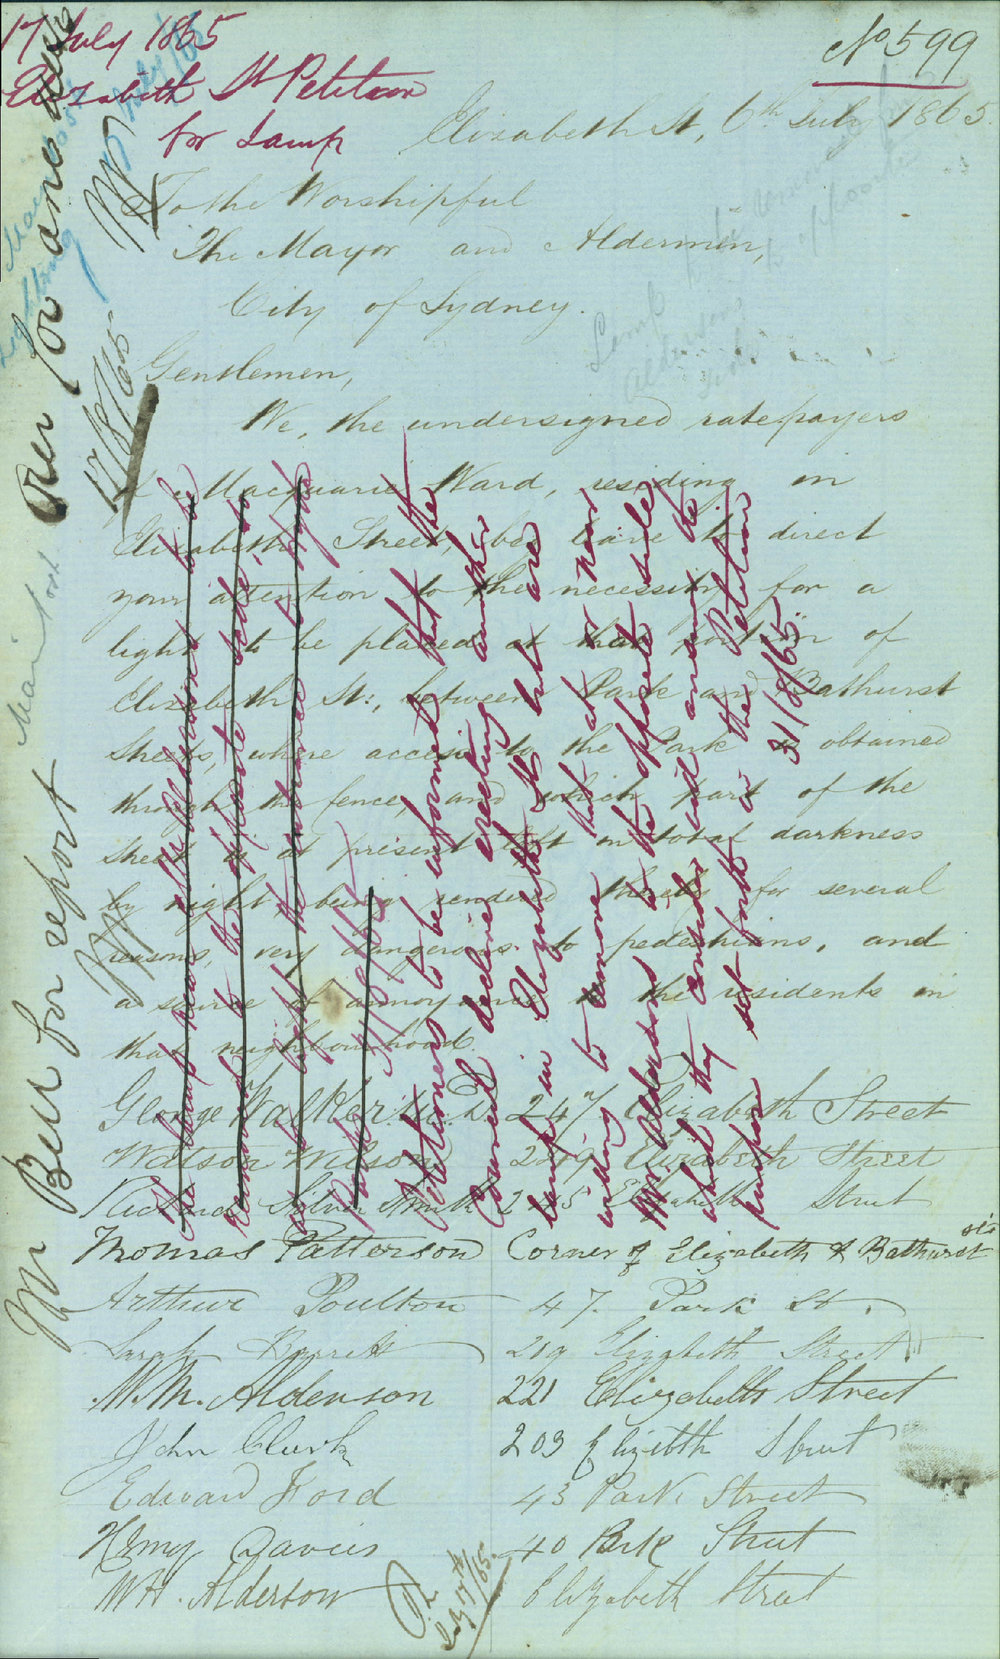 17 July 1865
Elizabeth St Petition
for Lamp
No 599
Elizabeth St, 6th July 1865.
To the Worshipful
The Mayor and Aldermen,
City of Sydney.
Gentlemen,
We, the undersigned ratepayers
Macquarie Ward, residing in
Elizabeth Street, beg leave to direct
your attention to the necessity for a
light to be placed at that portion of
Elizabeth St:, between Park and Bathurst
Streets, where access to the Park is obtained
through the fence, and which part of the
street is at present left in total darkness
by night, being rendered thereby for several
reasons, very dangerous to pedestrians, and
a source of annoyance to the residents in
that neighbourhood.
George Walker 247 Elizabeth Street
Watson Wilson 249 Elizabeth Street
Richard Smith 245 Elizabeth Street
Thomas Patterson Corner of Elizabeth & Bathurst sts
Arthur Poulton 47. Park St.
Sarah Barrett 219 Elizabeth Street
W. M. Alderson 221 Elizabeth Street
John Clark 203 Elizabeth Street
Edward Ford 43 Park Street
Henry Davies 40 Park Street
W H. Alderson Elizabeth Street
July 17th/65.
Mr Bell for report
17/8/65
the lamp near Mr Aldersons to be
removed to the opposite side, so
as to light the entrance to Hyde
Park
Petitioners to be informed that the
Council decline erecting another
lamp in Elizabeth St but are
willing to remove that at or near
Mr Aldersons to the opposite side
which they consider will answer the
purpose set forth in the Petition
31/8/65